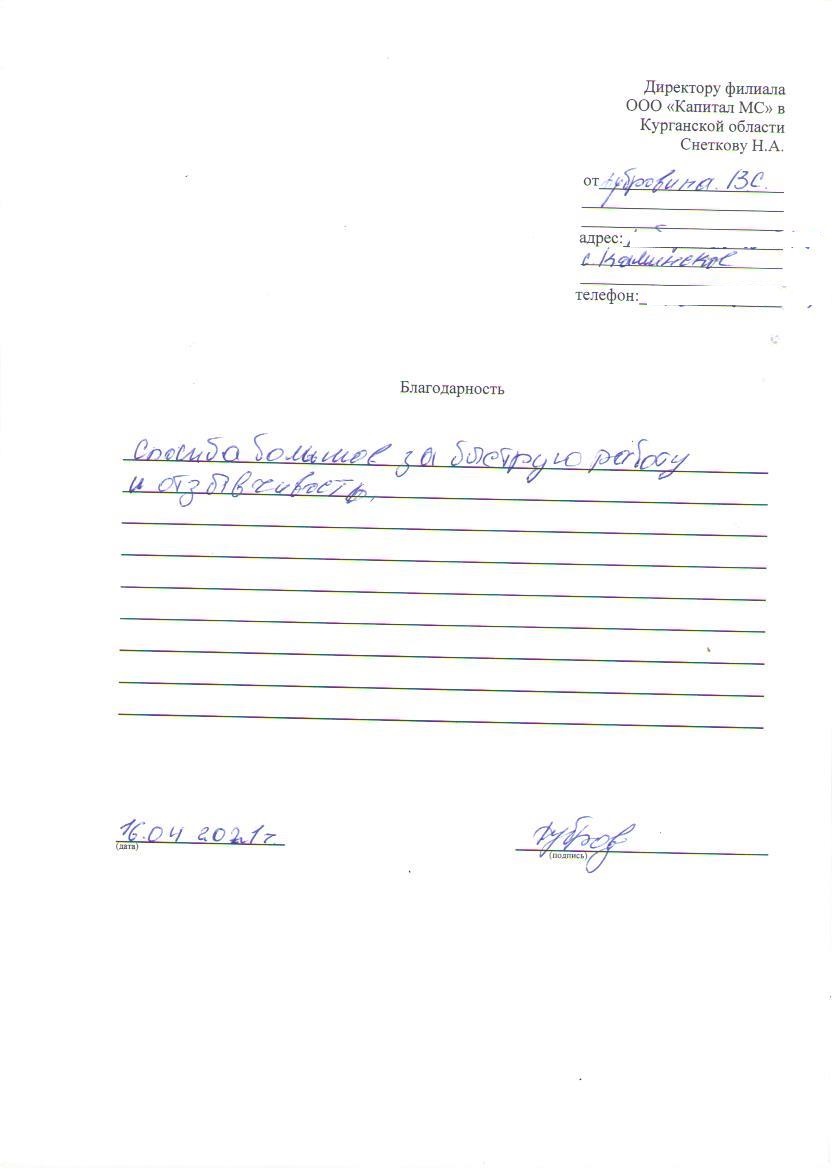 Директору филиала
ООО «Капитал МС» в
Курганской области
Снеткову Н.А.
от Дубровина. В.С.
адрес:
с Каминское
телефон:
Благодарность
Спасиба большое за быструю работу
и отзывчивость,
16.04 2021г.
(дата)
Дубров
(подпись)